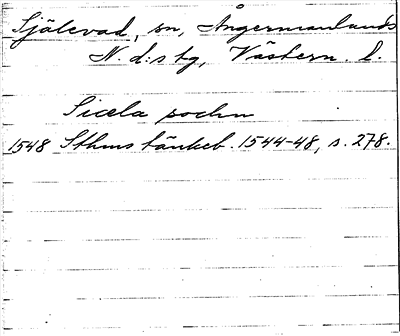 Själevad, sn, Ångermanlands
N. d:s tg, Västern. l.
Sicela sochn
1548 Sthms tänkeb. 1544-48, s. 278.